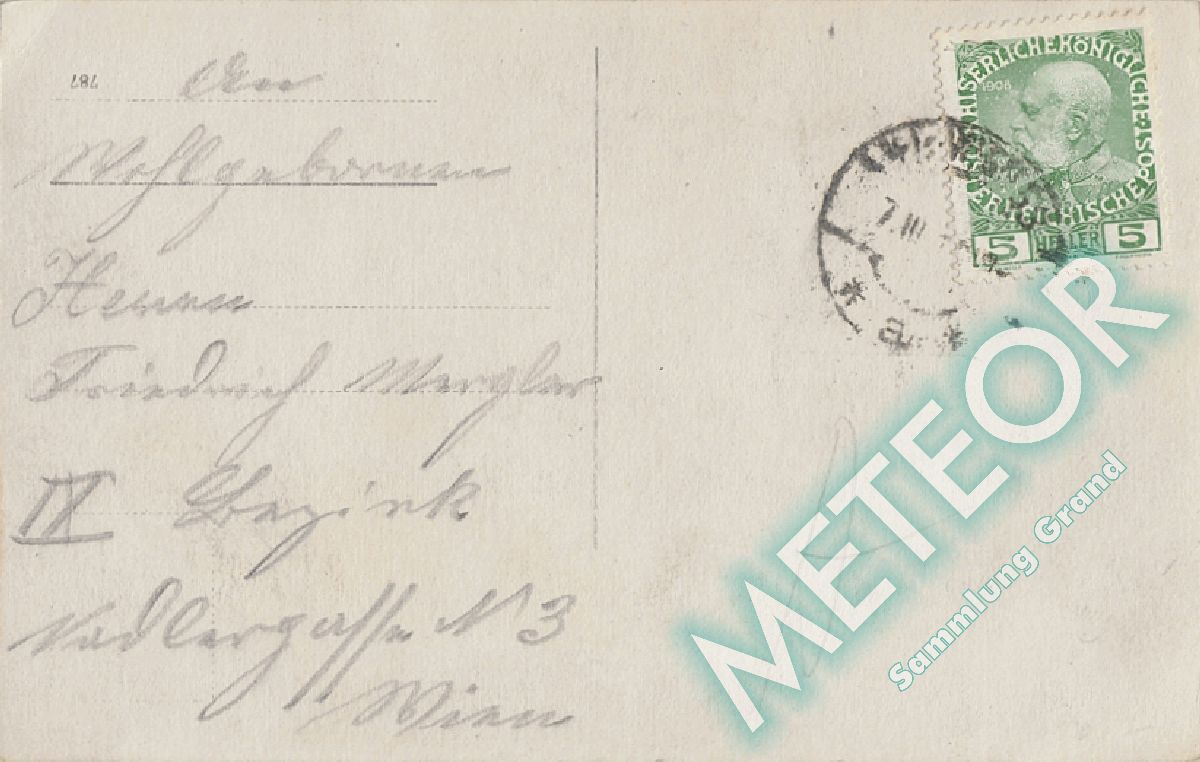 484
An
Wohlgebornen
Herrn
Friedrich Mergler
IX Bezirk
Nadlergasse N 3
Wien
KAISERLICHE KÖNIGLICHE
ÖSTERREICHISCHE POST
1908
5 HELLER 5
7. III
* a *
METEOR
Sammlung Grand